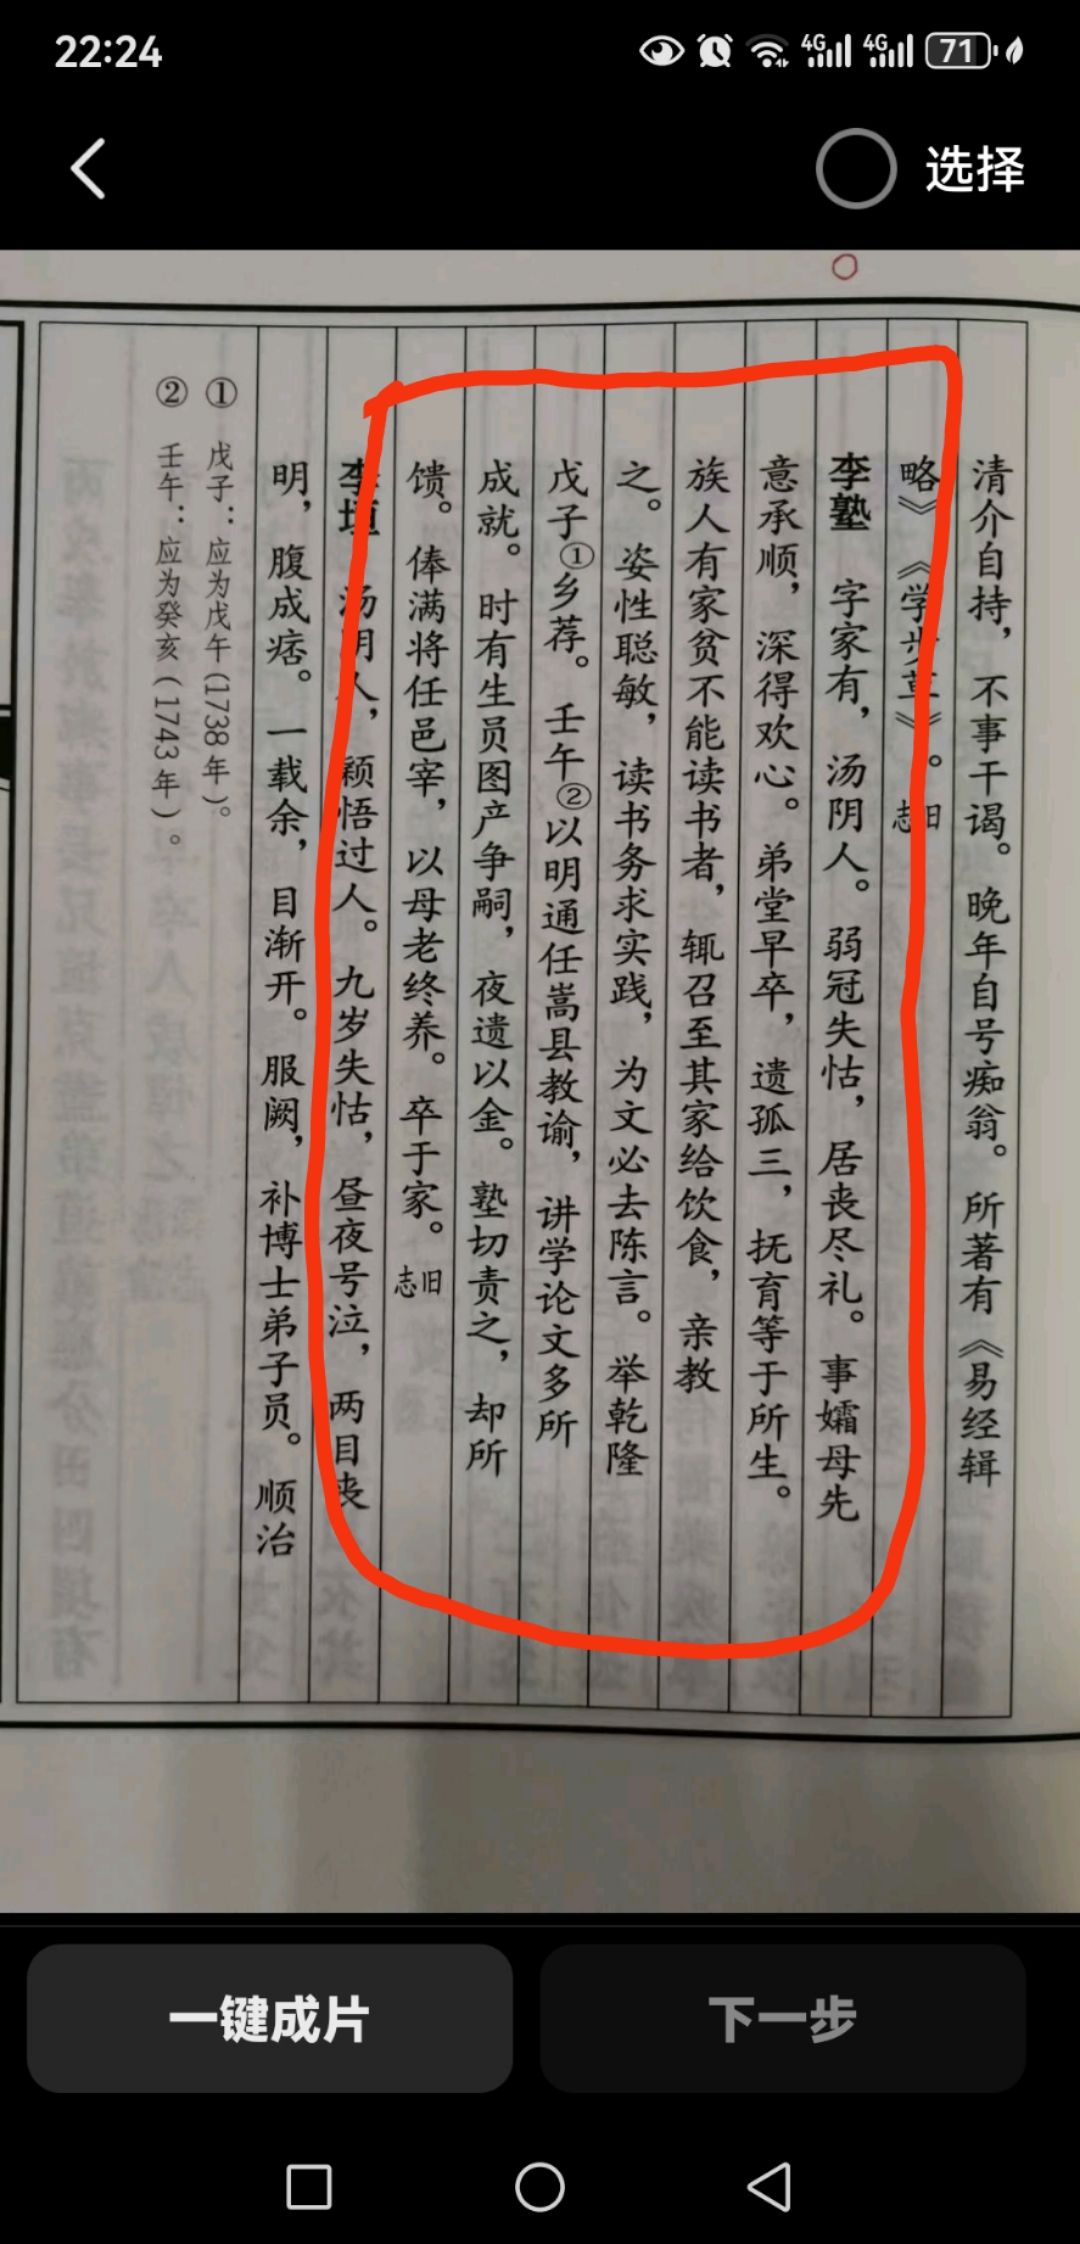 22:24
4G 4G 71
选择
清介自持，不事干谒。晚年自号痴翁。所著有《易经辑
略》《学步草》。旧志
李塾 字家有，汤阴人。弱冠失怙，居丧尽礼。事孀母先
意承顺，深得欢心。弟堂早卒，遗孤三，抚育等于所生。
族人有家贫不能读书者，辄召至其家给饮食，亲教
之。姿性聪敏，读书务求实践，为文必去陈言。举乾隆
戊子①乡荐。壬午②以明通任嵩县教谕，讲学论文多所
成就。时有生员图产争嗣，夜遗以金。塾切责之，却所
馈。俸满将任邑宰，以母老终养。卒于家。旧志
李垣 汤阴人，颖悟过人。九岁失怙，昼夜号泣，两目丧
明，腹成痞。一载余，目渐开。服阙，补博士弟子员。顺治
① 戊子：应为戊午(1738年)。
② 壬午：应为癸亥(1743年)。
一键成片
下一步